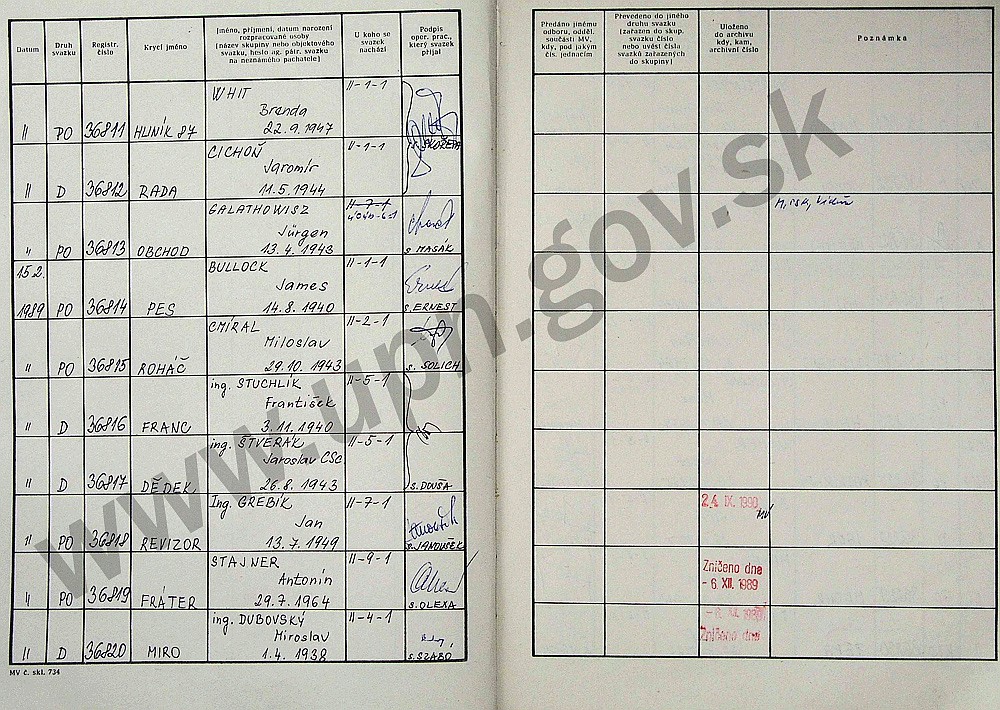 Datum
Druh
svazku
Registr.
číslo
Krycí jméno
Jméno, příjmení, datum narození
rozpracované osoby
(název skupiny nebo objektového
svazku, heslo ag. pátr. svazku
na neznámého pachatele)
U koho se
svazek
nachází
Podpis
oper. prac.,
který svazek
přijal
Předáno jinému
odboru, odděl.
součásti MV,
kdy, pod jakým
čís. jednacím
Převedeno do jiného
druhu svazku
(zařazen do skup.
svazku číslo
nebo uvést čísla
svazků zařazených
do skupiny)
Uloženo
do archivu
kdy, kam,
archivní číslo
Poznámka
WHIT II-1-1
Brenda
II PO 36811 HLINÍK 87 22.9.1947
CICHOŇ II-1-1
Jaromír
II D 36812 RADA 11.5.1944
GALATHOWISZ II-7-1
Jürgen
II PO 36813 OBCHOD 13.4.1943 s MASÁK
15.2. BULLOCK II-1-1
James
1989 PO 36814 PES 14.8.1940 s. ERNEST
CMÍRAL II-2-1
Miloslav
PO 36815 ROHÁČ 29.10.1943 s. SOLICH
ing. STUCHLÍK II-5-1
František
D 36816 FRANC 3.11.1940
ing. ŠTVERÁK II-5-1
Jaroslav CSc
II D 36817 DĚDEK 26.8.1943 s. DOUŠA
Ing. GREBÍK II-7-1 24. IX. 1990
Jan MV
II PO 36818 REVIZOR 13.7.1949 s. JANOUŠEK
STAJNER II-9-1 Zničeno dne
Antonín -6. XII. 1989
II PO 36819 FRÁTER 29.7.1964 s. OLEXA
ing. DUBOVSKÝ II-4-1 -6. XII. 1989
Miroslav Zničeno dne
II D 36820 MIRO 1.4.1938 s. SZABÓ
MV č. skl. 734
www.upn.gov.sk